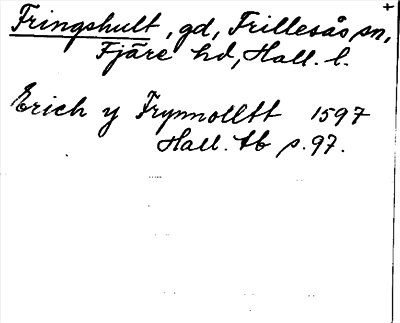 Fringshult, gd, Frillesås sn,
Fjäre hd, Hall. l.
Erich y Frynnotllt 1597
Hall. tb s. 97.